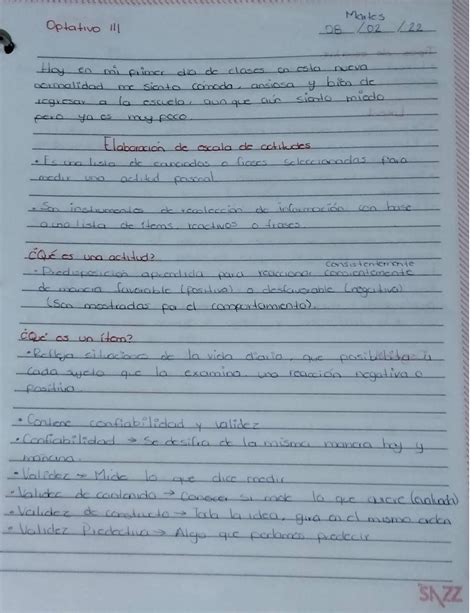 Martes
Optativo III
08 / 02 / 22
Hoy en mi primer dia de clases en esta nueva
normalidad me siento comoda, ansiosa y bien de
regresar a la escuela, aunque aún siento miedo
pero ya es muy poco.
Elaboración de escala de actitudes
• Es una lista de enunciados o frases seleccionadas para
medir una actitud personal
• Son instrumentos de recolección de información con base
a una lista de ítems, reactivos o frases.
¿Qué es una actitud?
consistentemente
• Predisposición aprendida para reaccionar
de manera favorable (positiva) o desfavorable (negativa)
(Son mostradas por el comportamiento).
¿Qué es un ítem?
• Refleja situaciones de la vida diaria, que posibilita a
cada sujeto que lo examina una reacción negativa o
positiva.
• Contiene confiabilidad y validez
• Confiabilidad → Se desifra de la misma manera hoy y
mañana.
• Validez → Mide lo que dice medir
• Validez de contenido → Conocer si mide lo que quiere (evaluado)
• Validez de constructo → Toda la idea, gira en el mismo orden
• Validez Predectiva → Algo que podamos predecir
SAZZ